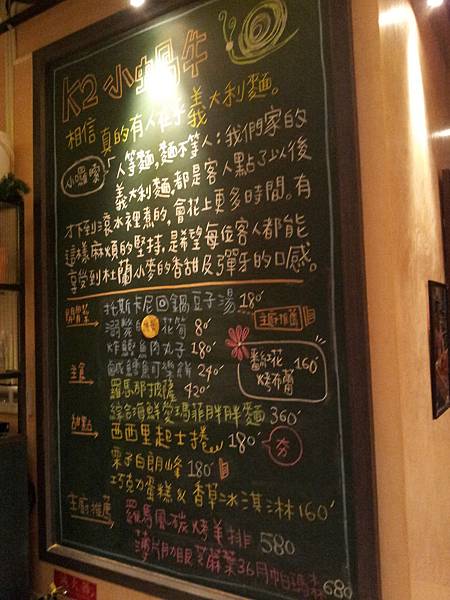 K2 小蝸牛
相信真的有人在乎義大利麵。
小囉嗦
「人等麵,麵不等人:我們家的
義大利麵,都是客人點了以後
才下到滾水裡煮的,會花上更多時間。有
這樣麻煩的堅持,是希望每位客人都能
享受到杜蘭小麥的香甜及彈牙的口感。
開胃菜
托斯卡尼回鍋豆子湯 180
主廚推薦
花筍 80
炸鱈魚肉丸子 180
鹹鱈魚可樂餅 240
160
烤布蕾
主食
羅馬那披薩 420
綜合海鮮愛瑪菲胖胖麵 360
甜點
西西里起士捲 180
夯
栗子白朗峰 180
巧克力蛋糕 & 香草冰淇淋 160
主廚推薦
羅馬風碳烤羊排 580
薄片肋眼芝麻葉36月帕瑪森 680